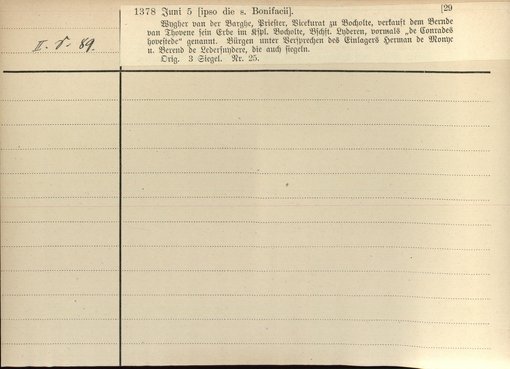 1378 Juni 5 [ipso die s. Bonifacii]. [29
Wygher van der Barghe, Priester, Vicekurat zu Bocholte, verkauft dem Bernde
van Thovene sein Erbe im Kspl. Bocholte, Bschft. Lyderen, vormals „de Conrades
hovestede“ genannt. Bürgen unter Versprechen des Einlagers Herman de Monyc
u. Berend de Ledersnydere, die auch siegeln.
Orig. 3 Siegel. Nr. 25.
II. 89.